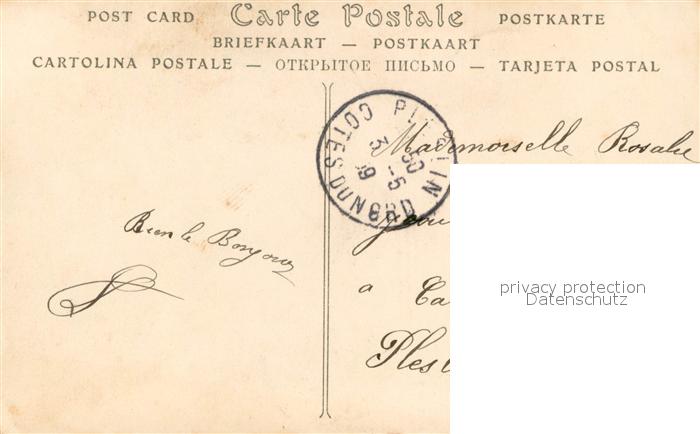 POST CARD Carte Postale POSTKARTE
BRIEFKAART — POSTKAART
CARTOLINA POSTALE — ОТКРЫТОЕ ПИСЬМО — TARJETA POSTAL
COTES DU NORD
Mademoiselle Rosalie
Bien le Bonjour
a
privacy protection
Datenschutz